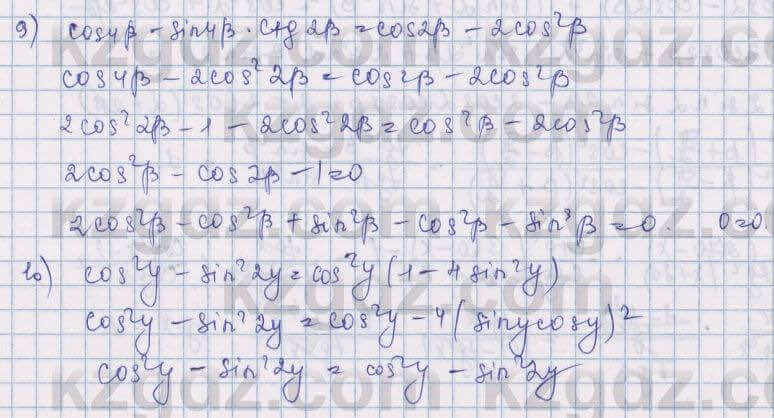 9) cos4β - sin4β · ctg 2β = cos2β - 2cos²β
cos4β - 2cos² 2β = cos²β - 2cos²β
2cos² 2β - 1 - 2cos² 2β = cos²β - 2cos²β
2cos²β - cos2β - 1 = 0
2cos²β - cos²β + sin²β - cos²β - sin²β = 0. 0=0.
10) cos²y - sin² 2y = cos²y (1 - 4 sin²y)
cos²y - sin² 2y = cos²y - 4 (sinycosy)²
cos²y - sin² 2y = cos²y - sin² 2y
kzgdz.com